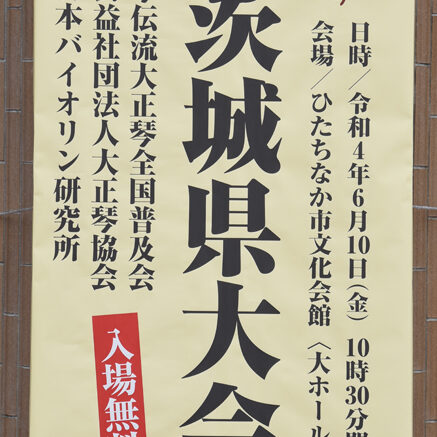 日時／令和4年6月10日(金) 10時30分開
会場／ひたちなか市文化会館 〈大ホール
茨城県大会
伝流大正琴全国普及会
益社団法人大正琴協会
本バイオリン研究所
入場無料